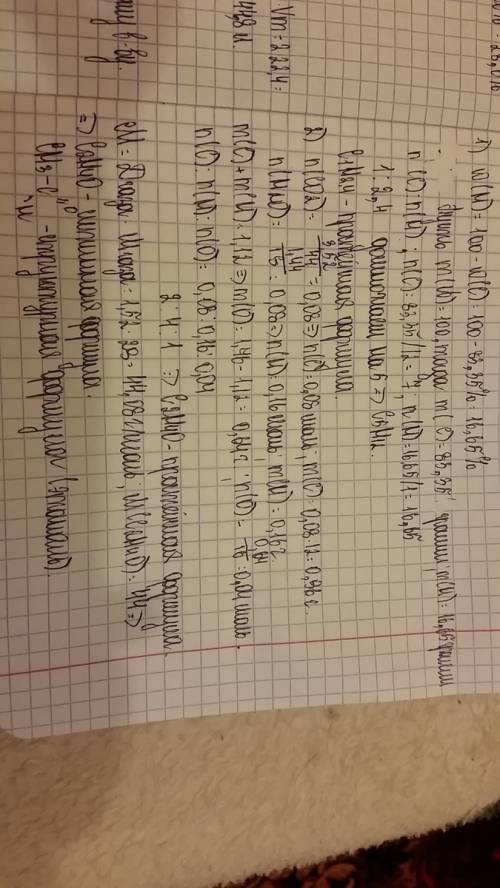 Vm = 2·22,4 =
44,8 л.
1) W(H) = 100 - W(C) = 100 - 83,35% = 16,65%
Пусть m(b) = 100, тогда m(C) = 83,35 грамм; m(H) = 16,65 грамм
n(C):n(H); n(C) = 83,35/12 = 7; n(H) = 16,65/1 = 16,65
1 : 2,4 домножаем на 5 => C5H12.
- простейшая формула.
2) n(CO2) = 3,52/44 = 0,08 => n(C) = 0,08 моль; m(C) = 0,08·12 = 0,96 г.
n(H2O) = 1,44/18 = 0,08 => n(H) = 0,16 моль; m(H) = 0,16 г.
m(C) + m(H) = 1,12 => m(O) = 1,76 - 1,12 = 0,64 г; n(O) = 0,64/16 = 0,04 моль.
n(C):n(H):n(O) = 0,08:0,16:0,04
2 : 4 : 1 => C2H4O - простейшая формула.
M = Dвозд. · Mвозд = 1,52 · 29 = 44,08 г/моль; M(C2H4O) = 44 =>
=> C2H4O - истинная формула.
CH3-C O H - структурная формула (этаналь).